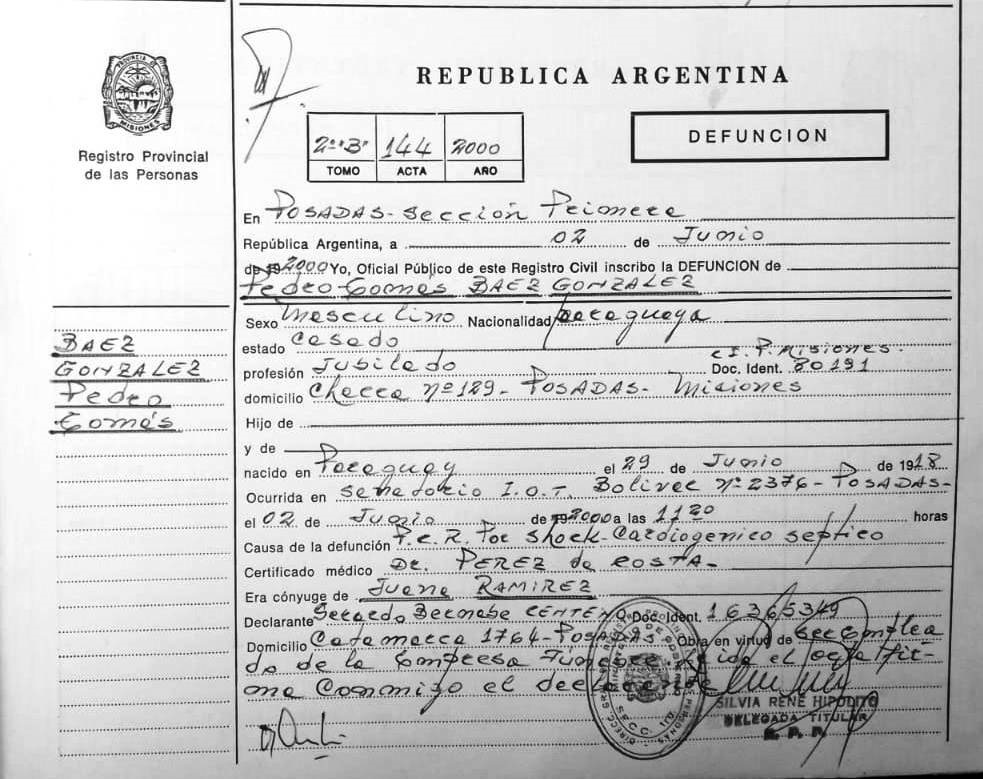 PROVINCIA DE
MISIONES
Registro Provincial
de las Personas
REPUBLICA ARGENTINA
2º "B" 144 2000
TOMO ACTA AÑO
DEFUNCION
En POSADAS - Sección Primera
República Argentina, a 02 de Junio
de 19 2000 Yo, Oficial Público de este Registro Civil inscribo la DEFUNCION de
Pedro Gomes BAEZ GONZALEZ
BAEZ
GONZALEZ
Pedro
Gomés
Sexo Masculino Nacionalidad paraguaya
estado Casado
C.I.P. Misiones.
profesión Jubilado Doc. Ident. 80191
domicilio Chacra Nº 129 - POSADAS - Misiones
Hijo de
y de
nacido en Paraguay el 29 de Junio de 1918
Ocurrida en sanatorio I.O.T. Bolivar Nº 2376 - POSADAS -
el 02 de Junio de 19 2000 a las 1120 horas
Causa de la defunción P.C.R. Por Shock - Cardiogenico septico
Certificado médico Dr. PEREZ da COSTA -
Era cónyuge de Juana RAMIREZ
Declarante Gerardo Bernabe CENTENO Doc. Ident. 16365349
Domicilio Catamarca 1764 - POSADAS - Obra en virtud de ser emplea
do de la Empresa Fúnebre el acta fir-
ma Conmigo el
SILVIA RENE HIPOLITO
DELEGADA TITULAR
R. P. P.